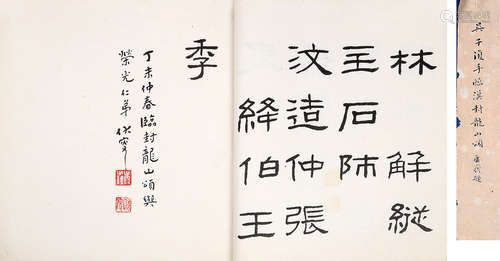 吳子復手臨漢封龍山頌
林解縱
王石师
汶造仲張
絳伯王
季
丁未仲春臨封龍山頌與
榮光仁弟